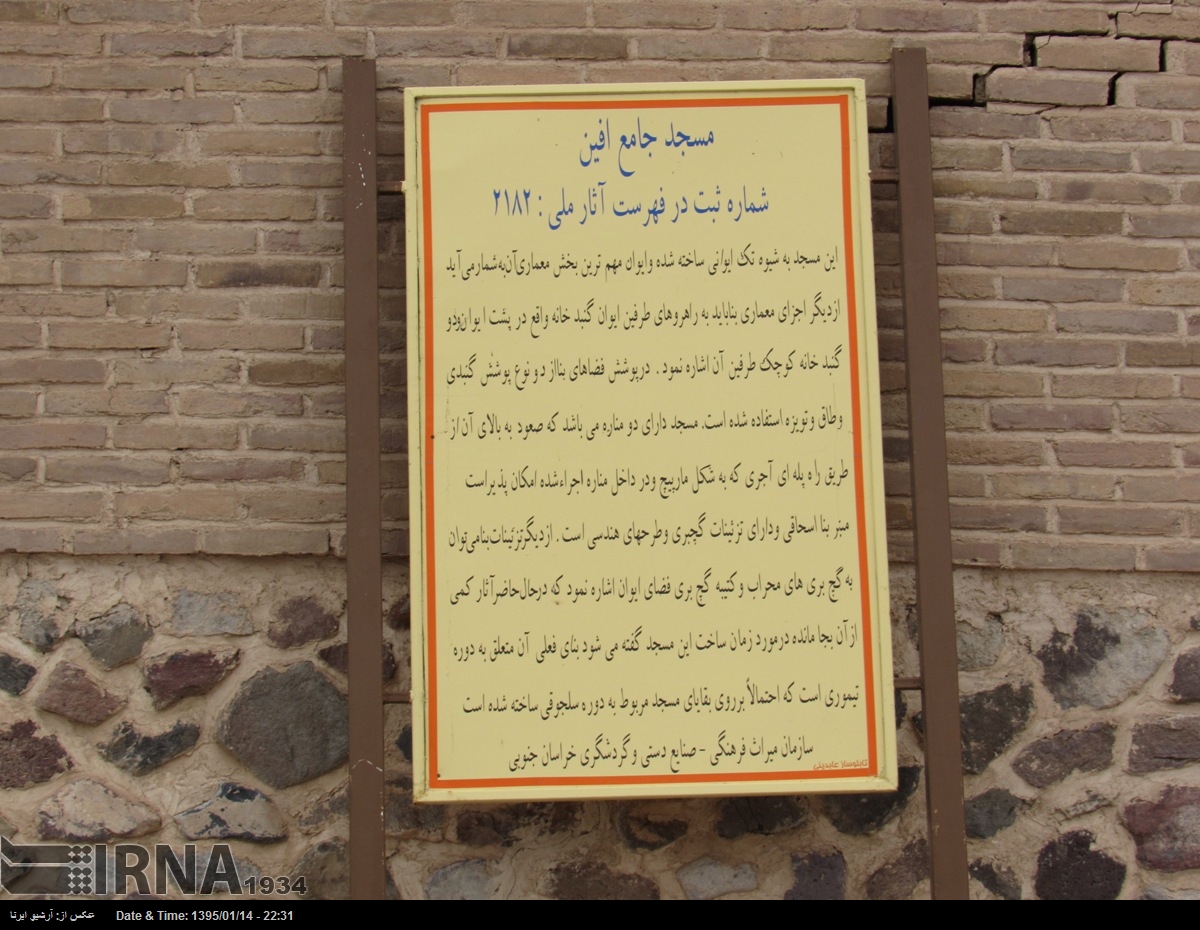 مسجد جامع افین
شماره ثبت در فهرست آثار ملی : ۲۱۸۲
این مسجد به شیوه تک ایوانی ساخته شده وایوان مهم ترین بخش معماری‌آن‌به‌شمارمی‌آید
ازدیگر اجزای معماری بناباید به راهروهای طرفین ایوان گنبد خانه واقع در پشت ایوان‌ودو
گنبد خانه کوچک طرفین آن اشاره نمود . درپوشش فضاهای بنااز دو نوع پوشش گنبدی
وطاق وتویزه استفاده شده است. مسجد دارای دو مناره می باشد که صعود به بالای آن از
طریق راه پله ای آجری که به شکل مارپیچ ودر داخل مناره اجراءشده امکان پذیراست
منبر بنا اسحاقی ودارای تزئینات گچبری وطرحهای هندسی است . ازدیگرتزئینات‌بنامی‌توان
به گچ بری های محراب وکتیبه گچ بری فضای ایوان اشاره نمود که درحال‌حاضرآثار کمی
ازآن بجا مانده درمورد زمان ساخت این مسجد گفته می شود بنای فعلی آن متعلق به دوره
تیموری است که احتمالاً برروی بقایای مسجد مربوط به دوره سلجوقی ساخته شده است
سازمان میراث فرهنگی - صنایع دستی وگردشگری خراسان جنوبی
تابلوساز عابدینی
IRNA 1934
عکس از: آرشیو ایرنا Date & Time: 1395/01/14 - 22:31